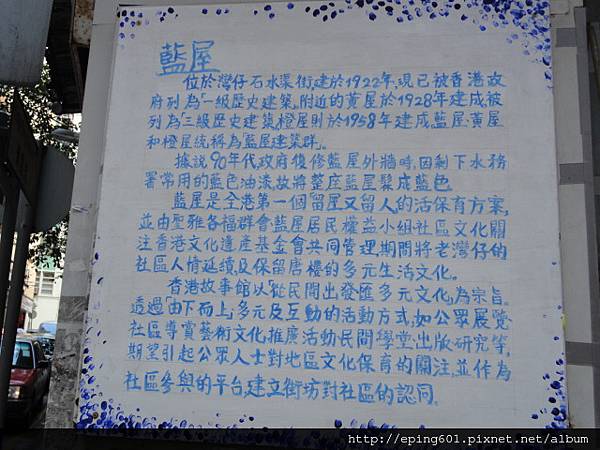 藍屋
位於灣仔石水渠街,建於1922年,現已被香港政
府列為一級歷史建築。附近的黃屋於1928年建成,被
列為三級歷史建築,橙屋則於1958年建成,藍屋,黃屋
和橙屋統稱為藍屋建築群。
據說90年代政府復修藍屋外牆時,因剩下水務
署常用的藍色油漆,故將整座藍屋髹成藍色
藍屋是全港第一個「留屋又留人」的活保育方案,
並由聖雅各福群會藍屋居民權益小組社區文化關
注香港文化遺產基金會共同管理,期間將老灣仔的
社區人情延續及保留唐樓的多元生活文化。
香港故事館以「從民間出發匯多元文化」為宗旨。
透過「由下而上」,多元及互動的活動方式,如公眾展覽
社區導賞藝術文化推廣活動民間學堂,出版研究等,
期望引起公眾人士對地區文化保育的關注,並作為
社區參與的平台,建立街坊對社區的認同。
http://eping601.pixnet.net/album